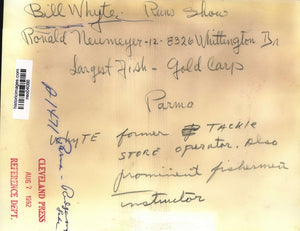 Bill Whyte. Runs Show
Ronald Neumeyer-12-8326 Whittington Dr
Largest Fish - Gold Carp
Parma
WHYTE former TACKLE
STORE operator. Also
prominent fisherman
instructor
P1471
CLEVELAND PRESS
AUG 7 1962
REFERENCE DEPT.